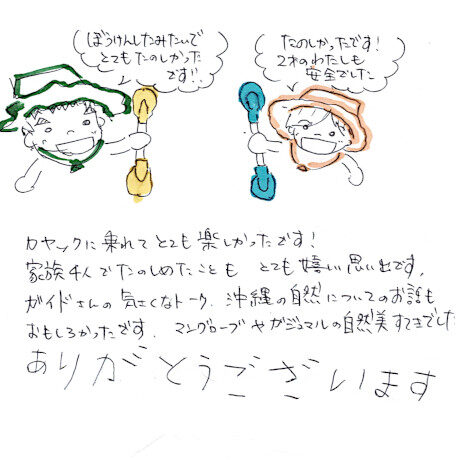 ぼうけんしたみたいで
とてもたのしかった
です!!
たのしかったです!
2才のわたしも
安全でした
カヤックに乗れてとても楽しかったです!
家族4人でたのしめたことも とても嬉しい思い出です。
ガイドさんの気さくなトーク、沖縄の自然についてのお話も
おもしろかったです。マングローブやガジュマルの自然美すてきでした
ありがとうございます